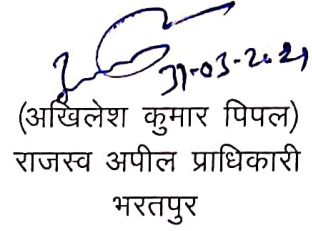 31-03-2021
(अखिलेश कुमार पिपल)
राजस्व अपील प्राधिकारी
भरतपुर